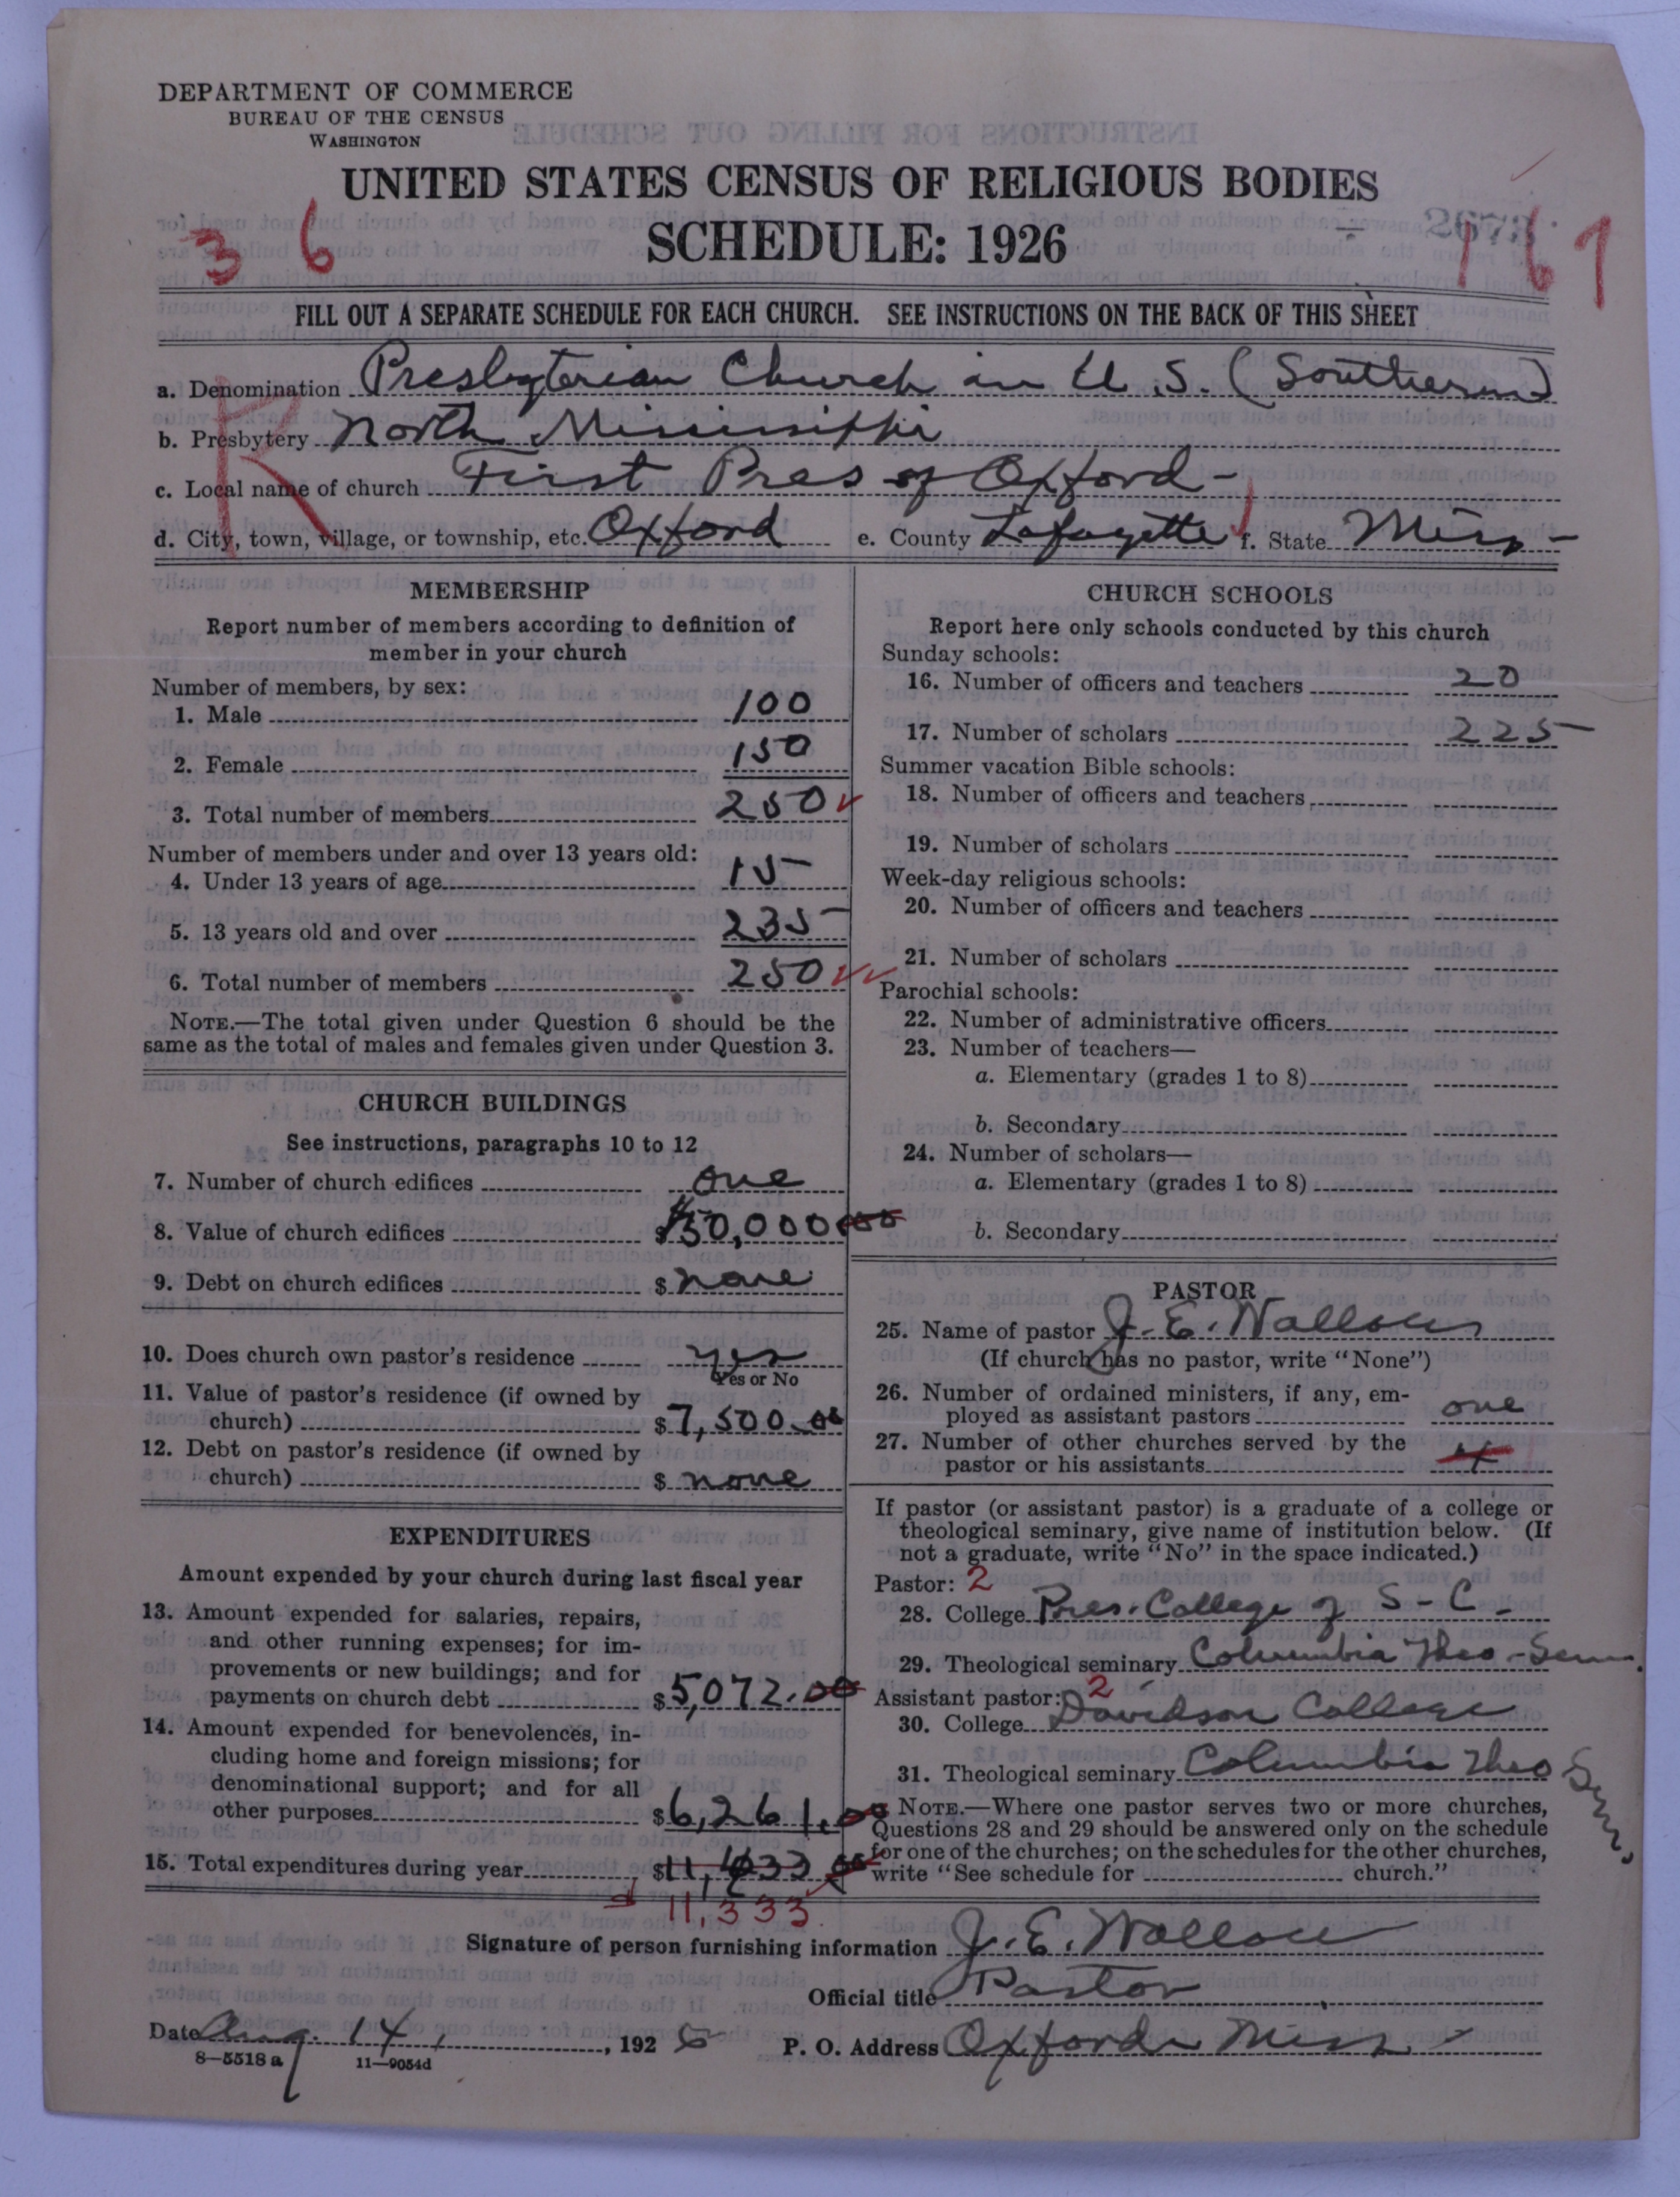 DEPARTMENT OF COMMERCE
BUREAU OF THE CENSUS
WASHINGTON
UNITED STATES CENSUS OF RELIGIOUS BODIES
SCHEDULE: 1926
3 6
2673
167
FILL OUT A SEPARATE SCHEDULE FOR EACH CHURCH. SEE INSTRUCTIONS ON THE BACK OF THIS SHEET
R
a. Denomination Presbyterian Church in U.S. (Southern)
b. Presbytery North Mississippi
c. Local name of church First Pres of Oxford -
d. City, town, village, or township, etc. Oxford e. County Lafayette f. State Miss -
MEMBERSHIP
Report number of members according to definition of
member in your church
Number of members, by sex:
1. Male 100
2. Female 150
3. Total number of members 250
Number of members under and over 13 years old:
4. Under 13 years of age 15
5. 13 years old and over 235
6. Total number of members 250
NOTE.—The total given under Question 6 should be the
same as the total of males and females given under Question 3.
CHURCH BUILDINGS
See instructions, paragraphs 10 to 12
7. Number of church edifices one
8. Value of church edifices $50,000 00
9. Debt on church edifices $ none
10. Does church own pastor's residence yes
Yes or No
11. Value of pastor's residence (if owned by
church) $7,500.00
12. Debt on pastor's residence (if owned by
church) $ none
EXPENDITURES
Amount expended by your church during last fiscal year
13. Amount expended for salaries, repairs,
and other running expenses; for im-
provements or new buildings; and for
payments on church debt $5,072.00
14. Amount expended for benevolences, in-
cluding home and foreign missions; for
denominational support; and for all
other purposes $6,261.00
15. Total expenditures during year $11,433 00
11,333
CHURCH SCHOOLS
Report here only schools conducted by this church
Sunday schools:
16. Number of officers and teachers 20
17. Number of scholars 225
Summer vacation Bible schools:
18. Number of officers and teachers
19. Number of scholars
Week-day religious schools:
20. Number of officers and teachers
21. Number of scholars
Parochial schools:
22. Number of administrative officers
23. Number of teachers—
a. Elementary (grades 1 to 8)
b. Secondary
24. Number of scholars—
a. Elementary (grades 1 to 8)
b. Secondary
PASTOR
25. Name of pastor J. E. Wallace
(If church has no pastor, write "None")
26. Number of ordained ministers, if any, em-
ployed as assistant pastors one
27. Number of other churches served by the
pastor or his assistants 4
If pastor (or assistant pastor) is a graduate of a college or
theological seminary, give name of institution below. (If
not a graduate, write "No" in the space indicated.)
Pastor: 2
28. College Pres. College of S - C -
29. Theological seminary Columbia Theo - Sem.
Assistant pastor: 2
30. College Davidson College
31. Theological seminary Columbia Theo Sem.
NOTE.—Where one pastor serves two or more churches,
Questions 28 and 29 should be answered only on the schedule
for one of the churches; on the schedules for the other churches,
write "See schedule for church."
Signature of person furnishing information J. E. Wallace
Official title Pastor
Date Aug. 14, 1926 P. O. Address Oxford Miss -
8—5518 a 11—9054d